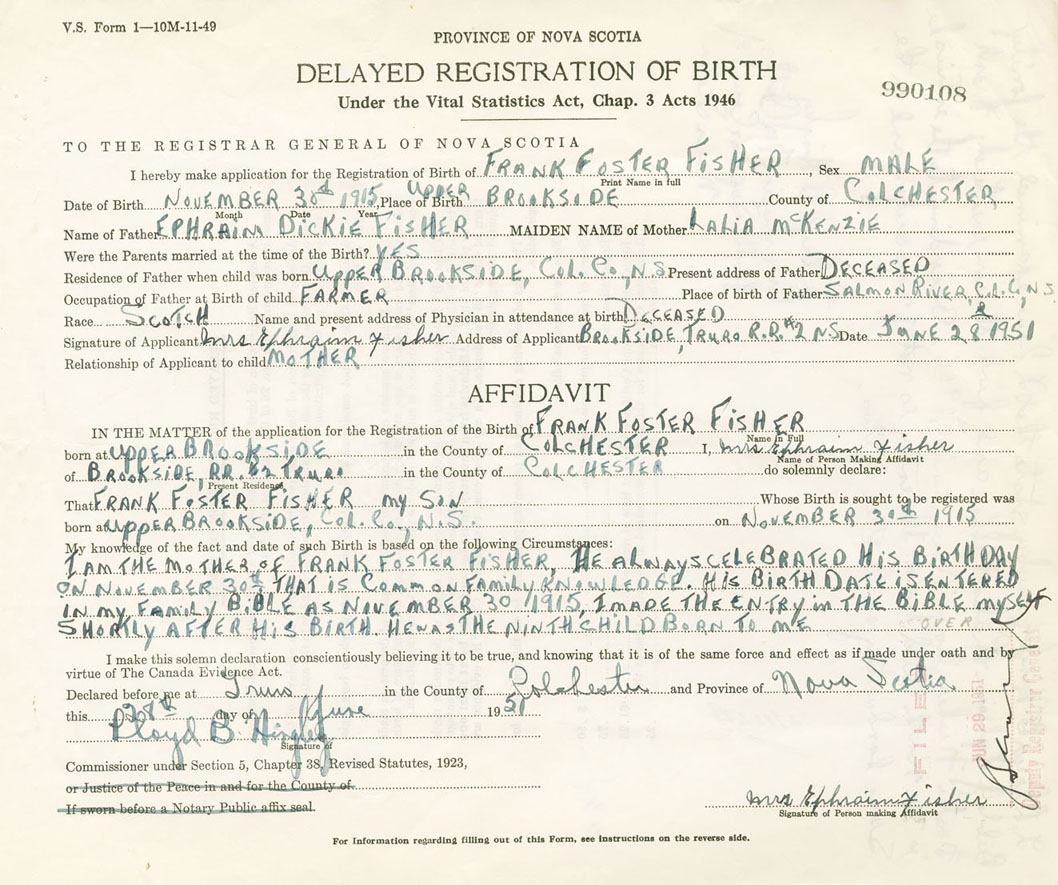 V.S. Form 1—10M-11-49
PROVINCE OF NOVA SCOTIA
DELAYED REGISTRATION OF BIRTH
990108
Under the Vital Statistics Act, Chap. 3 Acts 1946
TO THE REGISTRAR GENERAL OF NOVA SCOTIA
I hereby make application for the Registration of Birth of FRANK FOSTER FISHER, Sex MALE
Print Name in full
Date of Birth NOVEMBER 30th 1915, Place of Birth UPPER BROOKSIDE County of COLCHESTER
Month Date Year
Name of Father EPHRAIM DICKIE FISHER MAIDEN NAME of Mother LALIA McKENZIE
Were the Parents married at the time of the Birth? YES
Residence of Father when child was born UPPER BROOKSIDE, COL. CO., N.S. Present address of Father DECEASED
Occupation of Father at Birth of child FARMER Place of birth of Father SALMON RIVER, COL. CO, NS
Race SCOTCH Name and present address of Physician in attendance at birth DECEASED
Signature of Applicant Mrs Ephraim Fisher Address of Applicant BROOKSIDE, TRURO R.R. #2 NS Date JUNE 28 1951
Relationship of Applicant to child MOTHER
AFFIDAVIT
IN THE MATTER of the application for the Registration of the Birth of FRANK FOSTER FISHER
Name in Full
born at UPPER BROOKSIDE in the County of COLCHESTER I, Mrs Ephraim Fisher
Name of Person Making Affidavit
of BROOKSIDE, RR. #2 TRURO in the County of COLCHESTER do solemnly declare:
Present Residence
That FRANK FOSTER FISHER MY SON Whose Birth is sought to be registered was
born at UPPER BROOKSIDE, COL. CO., N.S. on NOVEMBER 30th 1915
My knowledge of the fact and date of such Birth is based on the following Circumstances:
I AM THE MOTHER OF FRANK FOSTER FISHER, HE ALWAYS CELEBRATED HIS BIRTHDAY
ON NOVEMBER 30th THAT IS COMMON FAMILY KNOWLEDGE. HIS BIRTH DATE IS ENTERED
IN MY FAMILY BIBLE AS NOVEMBER 30 1915, I MADE THE ENTRY IN THE BIBLE MYSELF
SHORTLY AFTER HIS BIRTH HE WAS THE NINTH CHILD BORN TO ME
OVER
I make this solemn declaration conscientiously believing it to be true, and knowing that it is of the same force and effect as if made under oath and by
virtue of The Canada Evidence Act.
Declared before me at Truro in the County of Colchester and Province of Nova Scotia
this 28th day of June 1951
Lloyd B.
Signature of
Commissioner under Section 5, Chapter 38, Revised Statutes, 1923,
or Justice of the Peace in and for the County of
If sworn before a Notary Public affix seal.
Mrs Ephraim Fisher
Signature of Person making Affidavit
For Information regarding filling out of this Form, see instructions on the reverse side.
FILE
JUN 29 1951
Deputy Registrar General